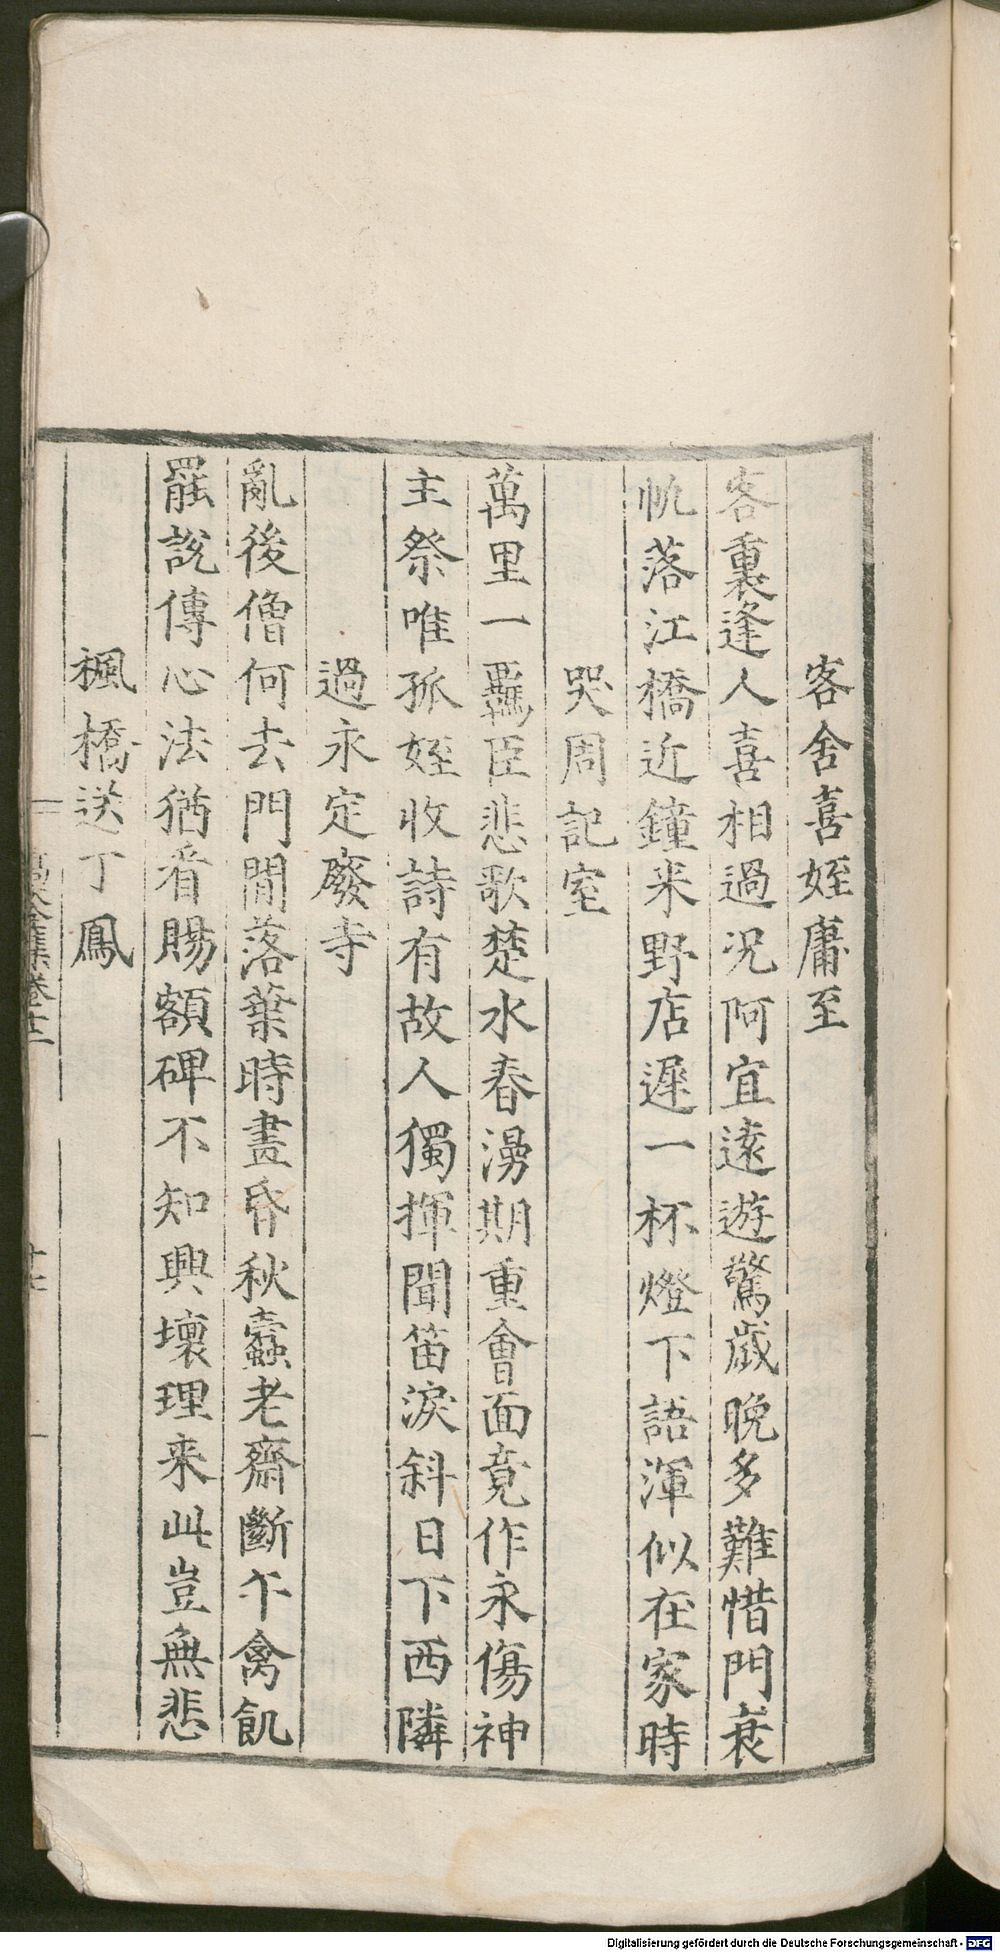 客舍喜姪庸至
客裏逢人喜相過況阿宜遠遊驚歲晚多難惜門衰
帆落江橋近鐘来野店遲一杯燈下語渾似在家時
哭周記室
萬里一羈臣悲歌楚水春漫期重會面竟作永傷神
主祭唯孤姪收詩有故人獨揮聞笛淚斜日下西隣
過永定廢寺
亂後僧何去門閒落葉時晝昏秋蠹老齋斷午禽飢
罷說傳心法猶看賜額碑不知興壞理来此豈無悲
楓橋送丁鳳
全集卷十二
十七
Digitalisierung gefördert durch die Deutsche Forschungsgemeinschaft - DFG